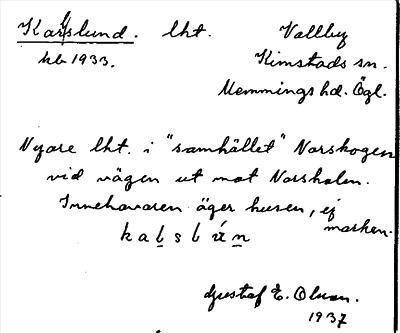 Karlslund. lht. Vallby
kb 1933. Kimstads sn.
Memmings hd. Ögl.
Nyare lht. i "samhället" Norskogen
vid vägen ut mot Norsholm.
Innehavaren äger husen, ej
marken.
Gustaf E. Olsson.
1937